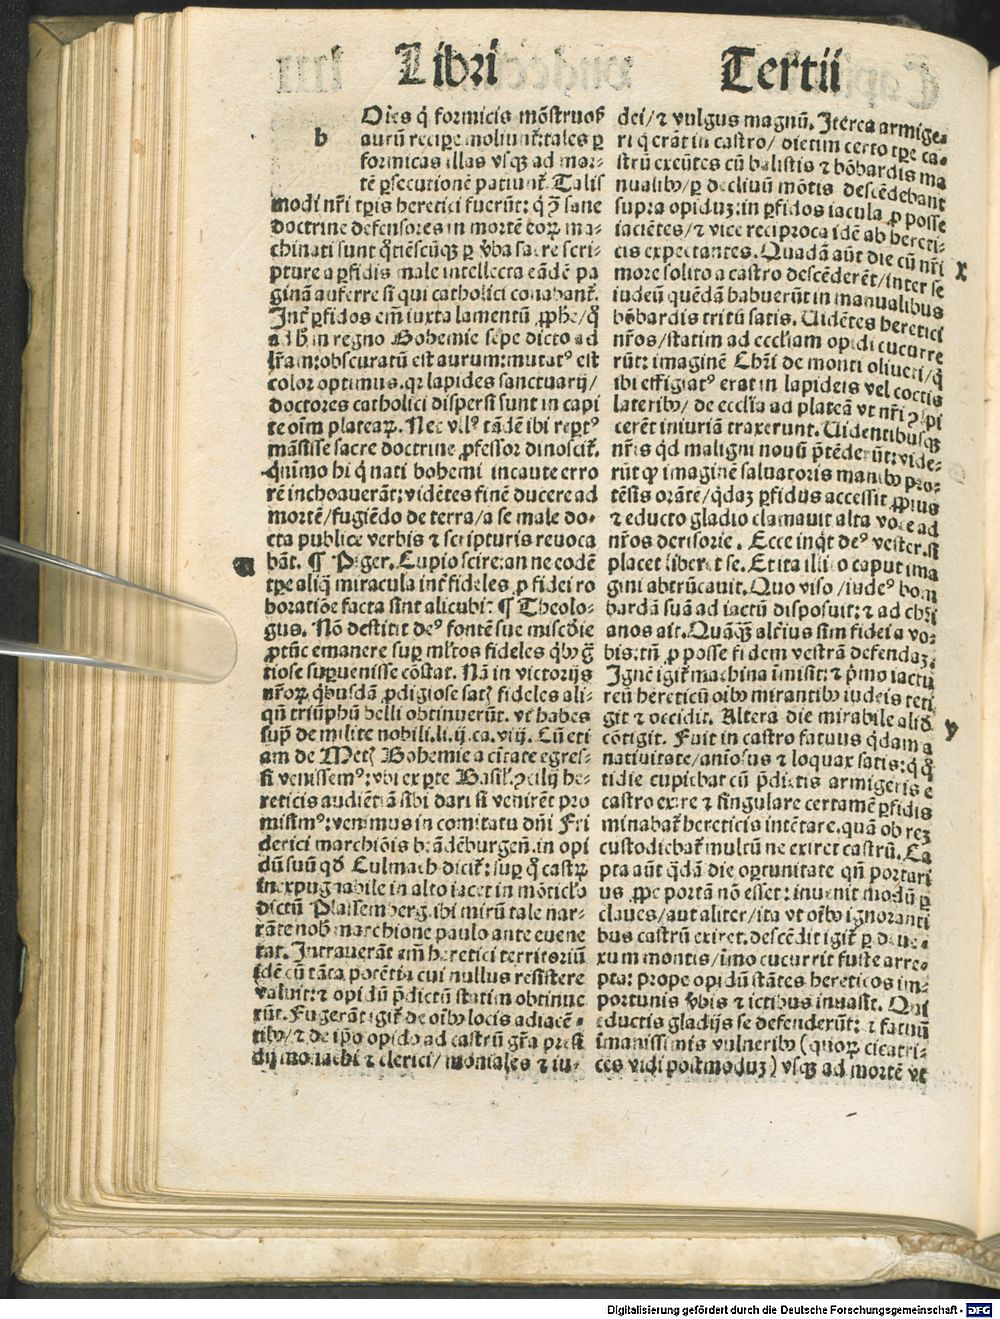 Libri Tertii
b
Oies q̃ formicis mõstruosꝭ
aurũ recipe moliunt̃: tales ꝑ
formicas illas vsqꝫ ad mor-
tẽ ꝑsecutionẽ patiunt̃. Talis
modi nr̃i tꝑis heretici fuerũt: q̃ ꝓ sane
doctrine defensores in mortẽ eoꝝ ma-
chinati sunt q̃tiẽscũqꝫ ꝑ v̾ba sacre scri-
pture a ꝑfidis male intellecta eãdẽ pa
ginã auferre si qui catholici conabant̃.
Int̃ ꝑfidos em̃ iuxta lamentũ ꝓphe/
in regno Bohemie sepe dicto ad
lr̃am: obscuratũ est aurum: mutatꝰ est
color optimus. qꝛ lapides sanctuarij/
doctores catholici dispersi sunt in capi
te oĩm plateaꝝ. Nec vllꝰ tãdẽ ibi reptꝰ
mãsisse sacre doctrine ꝓfessor dinoscit̃.
Quĩmo hi q̃ nati bohemi incaute erro
rẽ inchoauerãt: vidẽtes finẽ ducere ad
mortẽ/ fugiẽdo de terra/ a se male do-
cta publice verbis ⁊ scripturis reuoca
bãt. ¶ Piger. Cupio scire: an ne eodẽ
tꝑe aliq̃ miracula int̃ fideles ꝓ fidei ro
boratiõe facta sint alicubi: ¶ Theolo-
gus. Nõ destitit deꝰ fontẽ sue misc̃die
ꝓtũc emanere suꝑ ml̃tos fideles
tiose suꝑuenisse cõstat. Nã in victorijs
nr̃oꝝ q̃busdã ꝓdigiose satꝭ fideles ali-
qñ triũphũ belli obtinuerũt. vt habes
sup̃ de milite nobili. li. ij. ca. viij. Cũ eti
am de Metꝭ Bohemie a ciuitate egres-
si venissemꝰ: vbi ex ꝑte Basil. ꝯcilij he-
reticis audiẽtiã sibi dari si venirẽt pro
misimꝰ: venimus in comitatũ dñi Fri
derici marchiõis brãdẽburgeñ. in opi
dũ suũ qđ Culmach dicit̃: suꝑ q̃ castꝝ
inexpugnabile in alto iacet in mõticlo
dictũ Plassemberg. ibi mirũ tale nar-
rãte nobꝭ marchione paulo ante euene
rat. Intrauerãt em̃ heretici territoriũ
idẽ cũ tãta potẽtia cui nullus resistere
valuit: ⁊ opidũ p̃dictũ statim obtinue
rũt. Fugerãt igit̃ de oĩbꝫ locis adiacẽ-
tibꝫ/ ⁊ de ip̃o opido ad castrũ gr̃a presi
dij monachi ⁊ clerici/ moniales ⁊ iu-
dei/ ⁊ vulgus magnũ. Iterea armige-
ri q̃ erãt in castro/ dietim certo tꝑe ca-
strũ exeũtes cũ balistis ⁊ bõbardis ma
nualibꝫ/ ꝑ decliuũ mõtis descẽdebant
supra opiduꝫ: in ꝑfidos iacula ꝓ posse
iaciẽtes/ ⁊ vice reciproca idẽ ab hereti-
cis expectantes. Quadã aũt die cũ nr̃i
more solito a castro descẽderẽt/ inter se
iudeũ quẽdã habuerũt in manualibus
bõbardis tritũ satis. Uidẽtes heretici
nr̃os/ statim ad eccl̃iam opidi cucurre
rũt: imaginẽ Chr̃i de monti oliueti/ q̃
ibi effigiatꝰ erat in lapideis vel coctis
lateribꝫ/ de eccl̃ia ad plateã vt nr̃i ꝯspi
cerẽt iniuriã traxerunt. Uidentibusqꝫ
nr̃is qđ maligni nouũ p̃tẽderẽt: vide-
rũt ꝙ imaginẽ saluatoris manibꝫ pro-
tẽsis orãtẽ/ q̃daꝫ ꝑfidus accessit ꝓpius
⁊ educto gladio clamauit alta voce ad
nr̃os derisorie. Ecce inq̃t deꝰ vester. si
placet liberet se. Et ita illico caput ima
gini abtrũcauit. Quo viso/ iudeꝰ bom
bardã suã ad iactũ disposuit: ⁊ ad chr̃i
anos ait. Quãq̃ꝫ alteriꝰ sim fidei a vo-
bis: tñ ꝓ posse fidem vestrã defendaꝫ.
Ignẽ igit̃ machina ĩmisit: ⁊ p̃mo iactu
reũ hereticũ oĩbꝫ mirantibꝫ iudeis teti
git ⁊ occidit. Altera die mirabile aliđ
cõtigit. Fuit in castro fatuus q̃dam a
natiuitate/ aniõsus ⁊ loquax satis: q̃
tidie cupiebat cũ p̃dictis armigeris e
castro exire ⁊ singulare certamẽ ꝑfidis
minabat̃ hereticis intẽtare. quã ob reꝫ
custodiebat̃ multũ ne exiret castrũ. Ca
pta aũt q̃dã die oꝑtunitate qñ portari
us ꝓpe portã nõ esset: inuenit modũ ꝑ
claues/ aut aliter/ ita vt oĩbꝫ ignoranti
bus castrũ exiret. descẽdit igit̃ ꝑ deue-
xum montis/ ĩmo cucurrit fuste arre-
pta: prope opidũ stãtes hereticos im-
portunis v̾bis ⁊ ictibus inuasit. Qui
eductis gladijs se defenderũt: ⁊ fatuũ
ĩmanissimis vulneribꝫ (quoꝝ cicatri-
ces vidi postmoduꝫ) vsqꝫ ad mortẽ vt
x
y
Digitalisierung gefördert durch die Deutsche Forschungsgemeinschaft - DFG